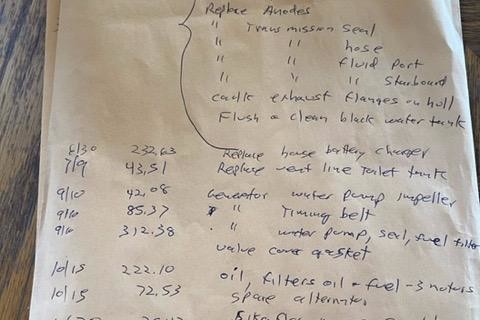 Replace Anodes
" Transmission seal
" " hose
" " fluid Port
" " " Starboard
caulk exhaust flanges on hull
Flush & clean black water tank
6/30 232,63 Replace house battery charger
7/9 43,51 Replace vent line toilet tank
9/10 42,08 Generator water pump impeller
9/10 85.37 " Timing belt
9/10 312.38 " water pump, seal, fuel filter
valve cover gasket
10/15 222.10 oil, filters oil & fuel - 3 motors
10/15 72,53 Spare alternator